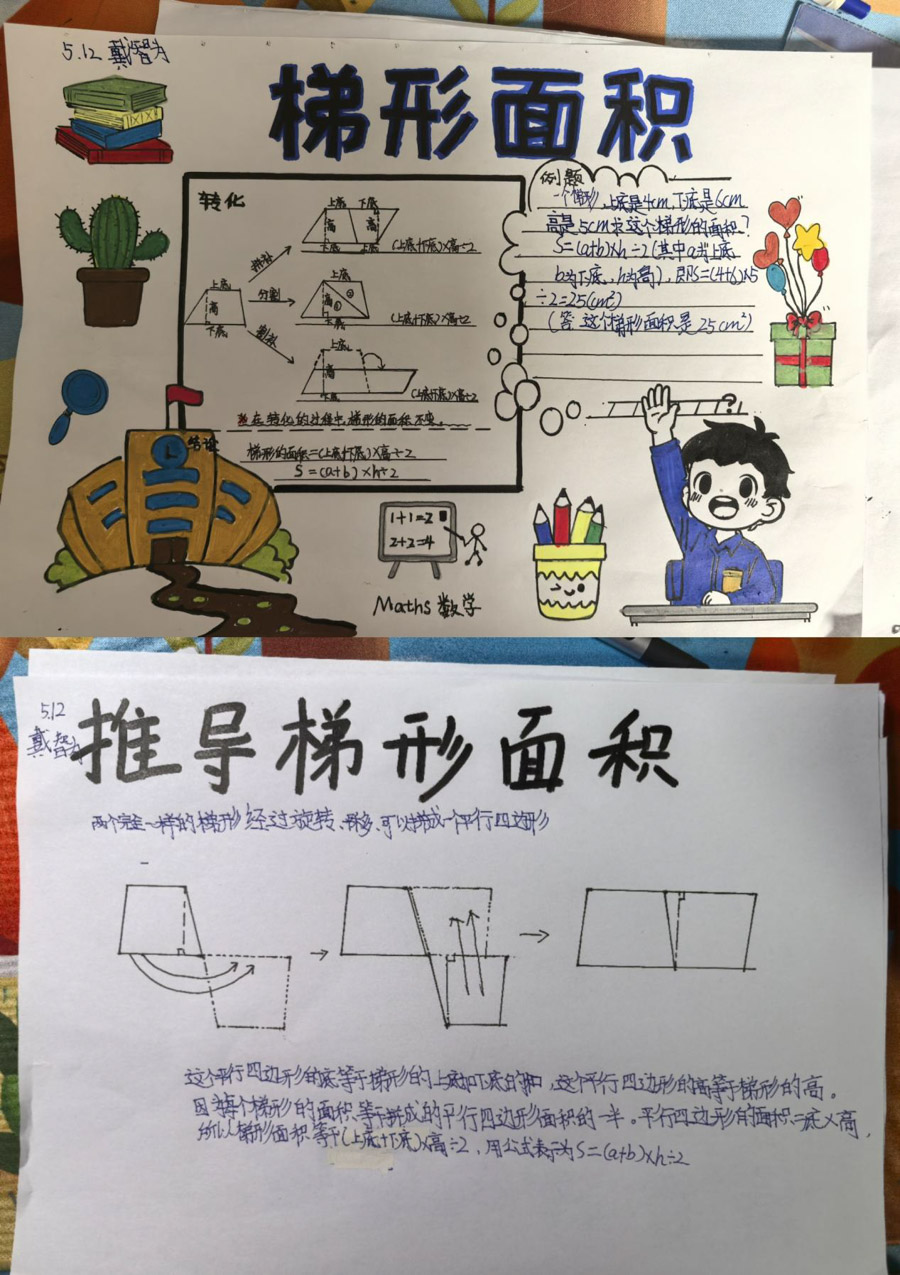 5.12 戴智为
梯形面积
转化
上底 下底
高 高
下底 上底
(上底+下底)×高÷2
拼补
上底
高
下底
分割
上底
高 ① ②
下底
(上底+下底)×高÷2
割补
上底
高
(上底+下底)×高÷2
在转化的过程中,梯形的面积不变。
结论
梯形的面积=(上底+下底)×高÷2
S=(a+b)×h÷2
例题
一个梯形,上底是4cm,下底是6cm
高是5cm求这个梯形的面积?
S=(a+b)×h÷2(其中a为上底
b为下底,h为高),即S=(4+6)×5
÷2=25(cm²)
(答:这个梯形面积是25cm²)
?
1+1=2
2+2=4
Maths 数学
5.12
戴智为
推导梯形面积
两个完全一样的梯形经过旋转、平移、可以拼成一个平行四边形
这个平行四边形的底等于梯形的上底加下底的和,这个平行四边形的高等于梯形的高。
因为每个梯形的面积等于拼成的平行四边形面积的一半。平行四边形的面积=底×高,
所以梯形面积等于(上底+下底)×高÷2,用公式表示为S=(a+b)×h÷2